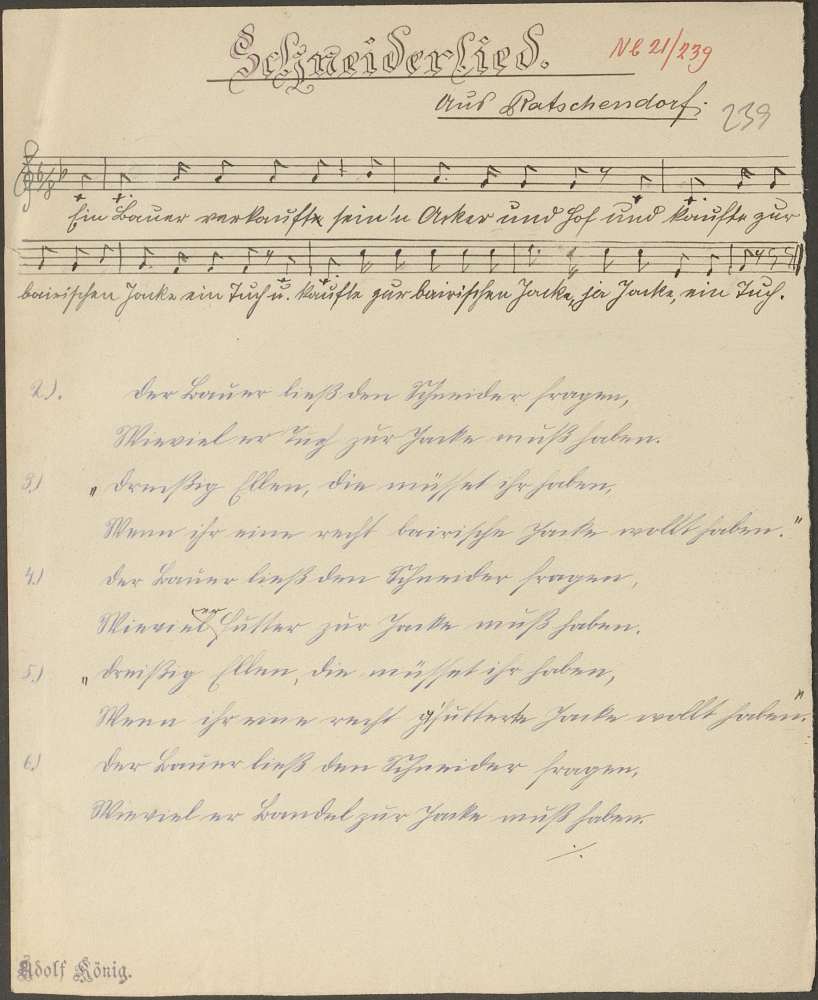 Schneiderlied.
Nb 21/239
Aus Ratschendorf.
239
Ein Bauer verkaufte sein'n Acker und Hof und kaufte zur
bairischen Jacke ein Tuch u. kaufte zur bairischen Jacke, ja Jacke, ein Tuch.
2.). Der Bauer ließ den Schneider fragen,
Wieviel er Tuch zur Jacke muß haben.
3.) „Dreißig Ellen, die müsset ihr haben,
Wenn ihr eine recht bairische Jacke wollt haben."
4.) Der Bauer ließ den Schneider fragen,
Wieviel er Futter zur Jacke muß haben.
5.) „Dreißig Ellen, die müsset ihr haben,
Wenn ihr eine recht g'futterte Jacke wollt haben".
6.) Der Bauer ließ den Schneider fragen,
Wieviel er Bandel zur Jacke muß haben.
./.
Adolf König.